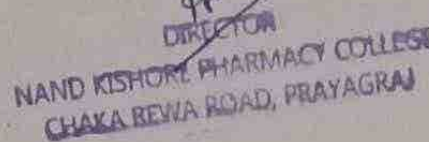 DIRECTOR
NAND KISHORE PHARMACY COLLEGE
CHAKA REWA ROAD, PRAYAGRAJ